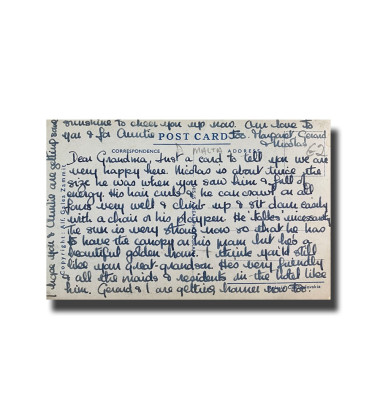 sunshine to cheer you up now. Our love to
you & for Auntie too. Margaret, Gerard
& Nicolas
POST CARD
CORRESPONDENCE
MALTA
ADDRESS
£2
Dear Grandma, Just a card to tell you we are
very happy here. Nicolas is about twice the
size he was when you saw him & full of
energy. His hair curls & he can crawl on all
fours very well & climb up & sit down easily
with a chair or his playpen. He 'talks' incessantly
the sun is very strong now so that he has
to have the canopy on his pram but he's a
beautiful golden brown. I think you'd still
like your great-grandson. He's very friendly
to all the maids & residents in the hotel like
him. Gerard & I are getting browner now too.
I hope you & Auntie are getting some
Copyright - Alf. Galea Zammit